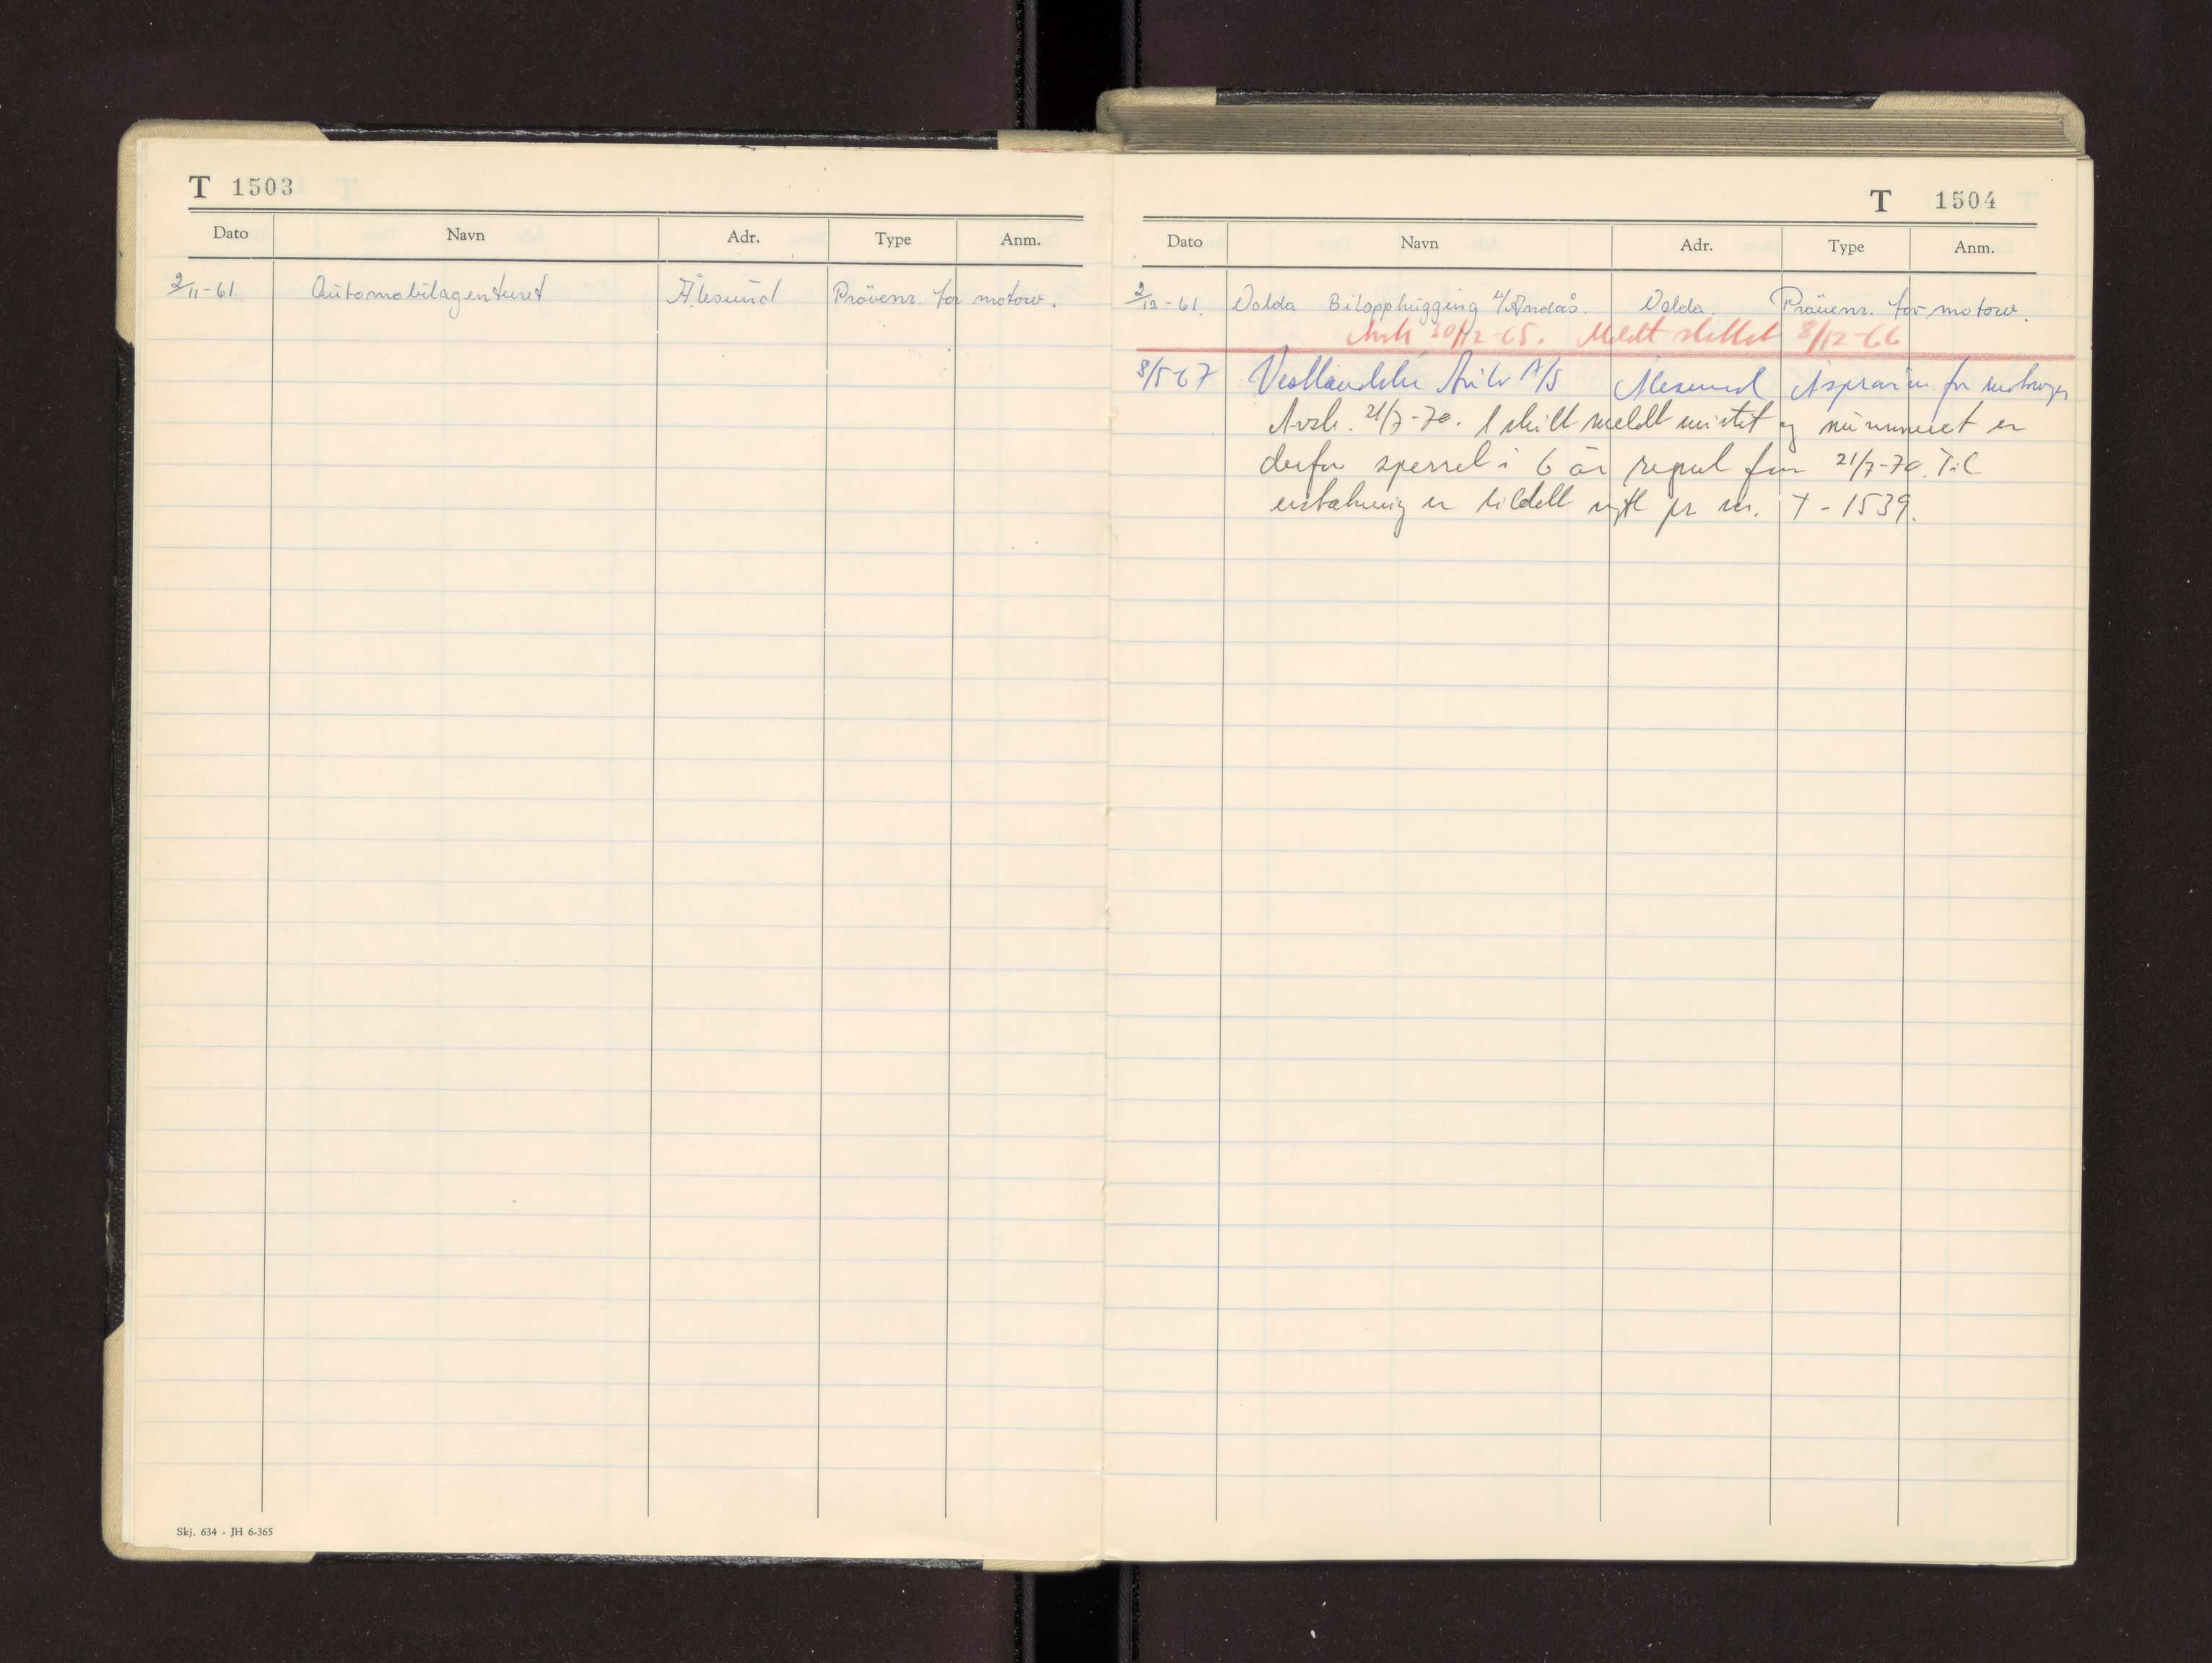 T 1503
Dato Navn Adr. Type Anm.
2/11-61 Automobilagenturet Ålesund Prövenr. for motorv.
Skj. 634 - JH 6-365
T 1504
Dato Navn Adr. Type Anm.
2/12-61. Volda Bilopphugging Volda. Prövenr. for motorv.
Avsk 30/12-65. Meldt slettet 8/12-66
8/5-67 Vestlandske Auto A/S Ålesund for motorvogn
Avsk. 21/7-70. 1 skilt meldt mistet og nummeret er
derfor sperret i 6 år regnet fra 21/7-70. Til
erstatning er tildelt nytt pr nr. T-1539.